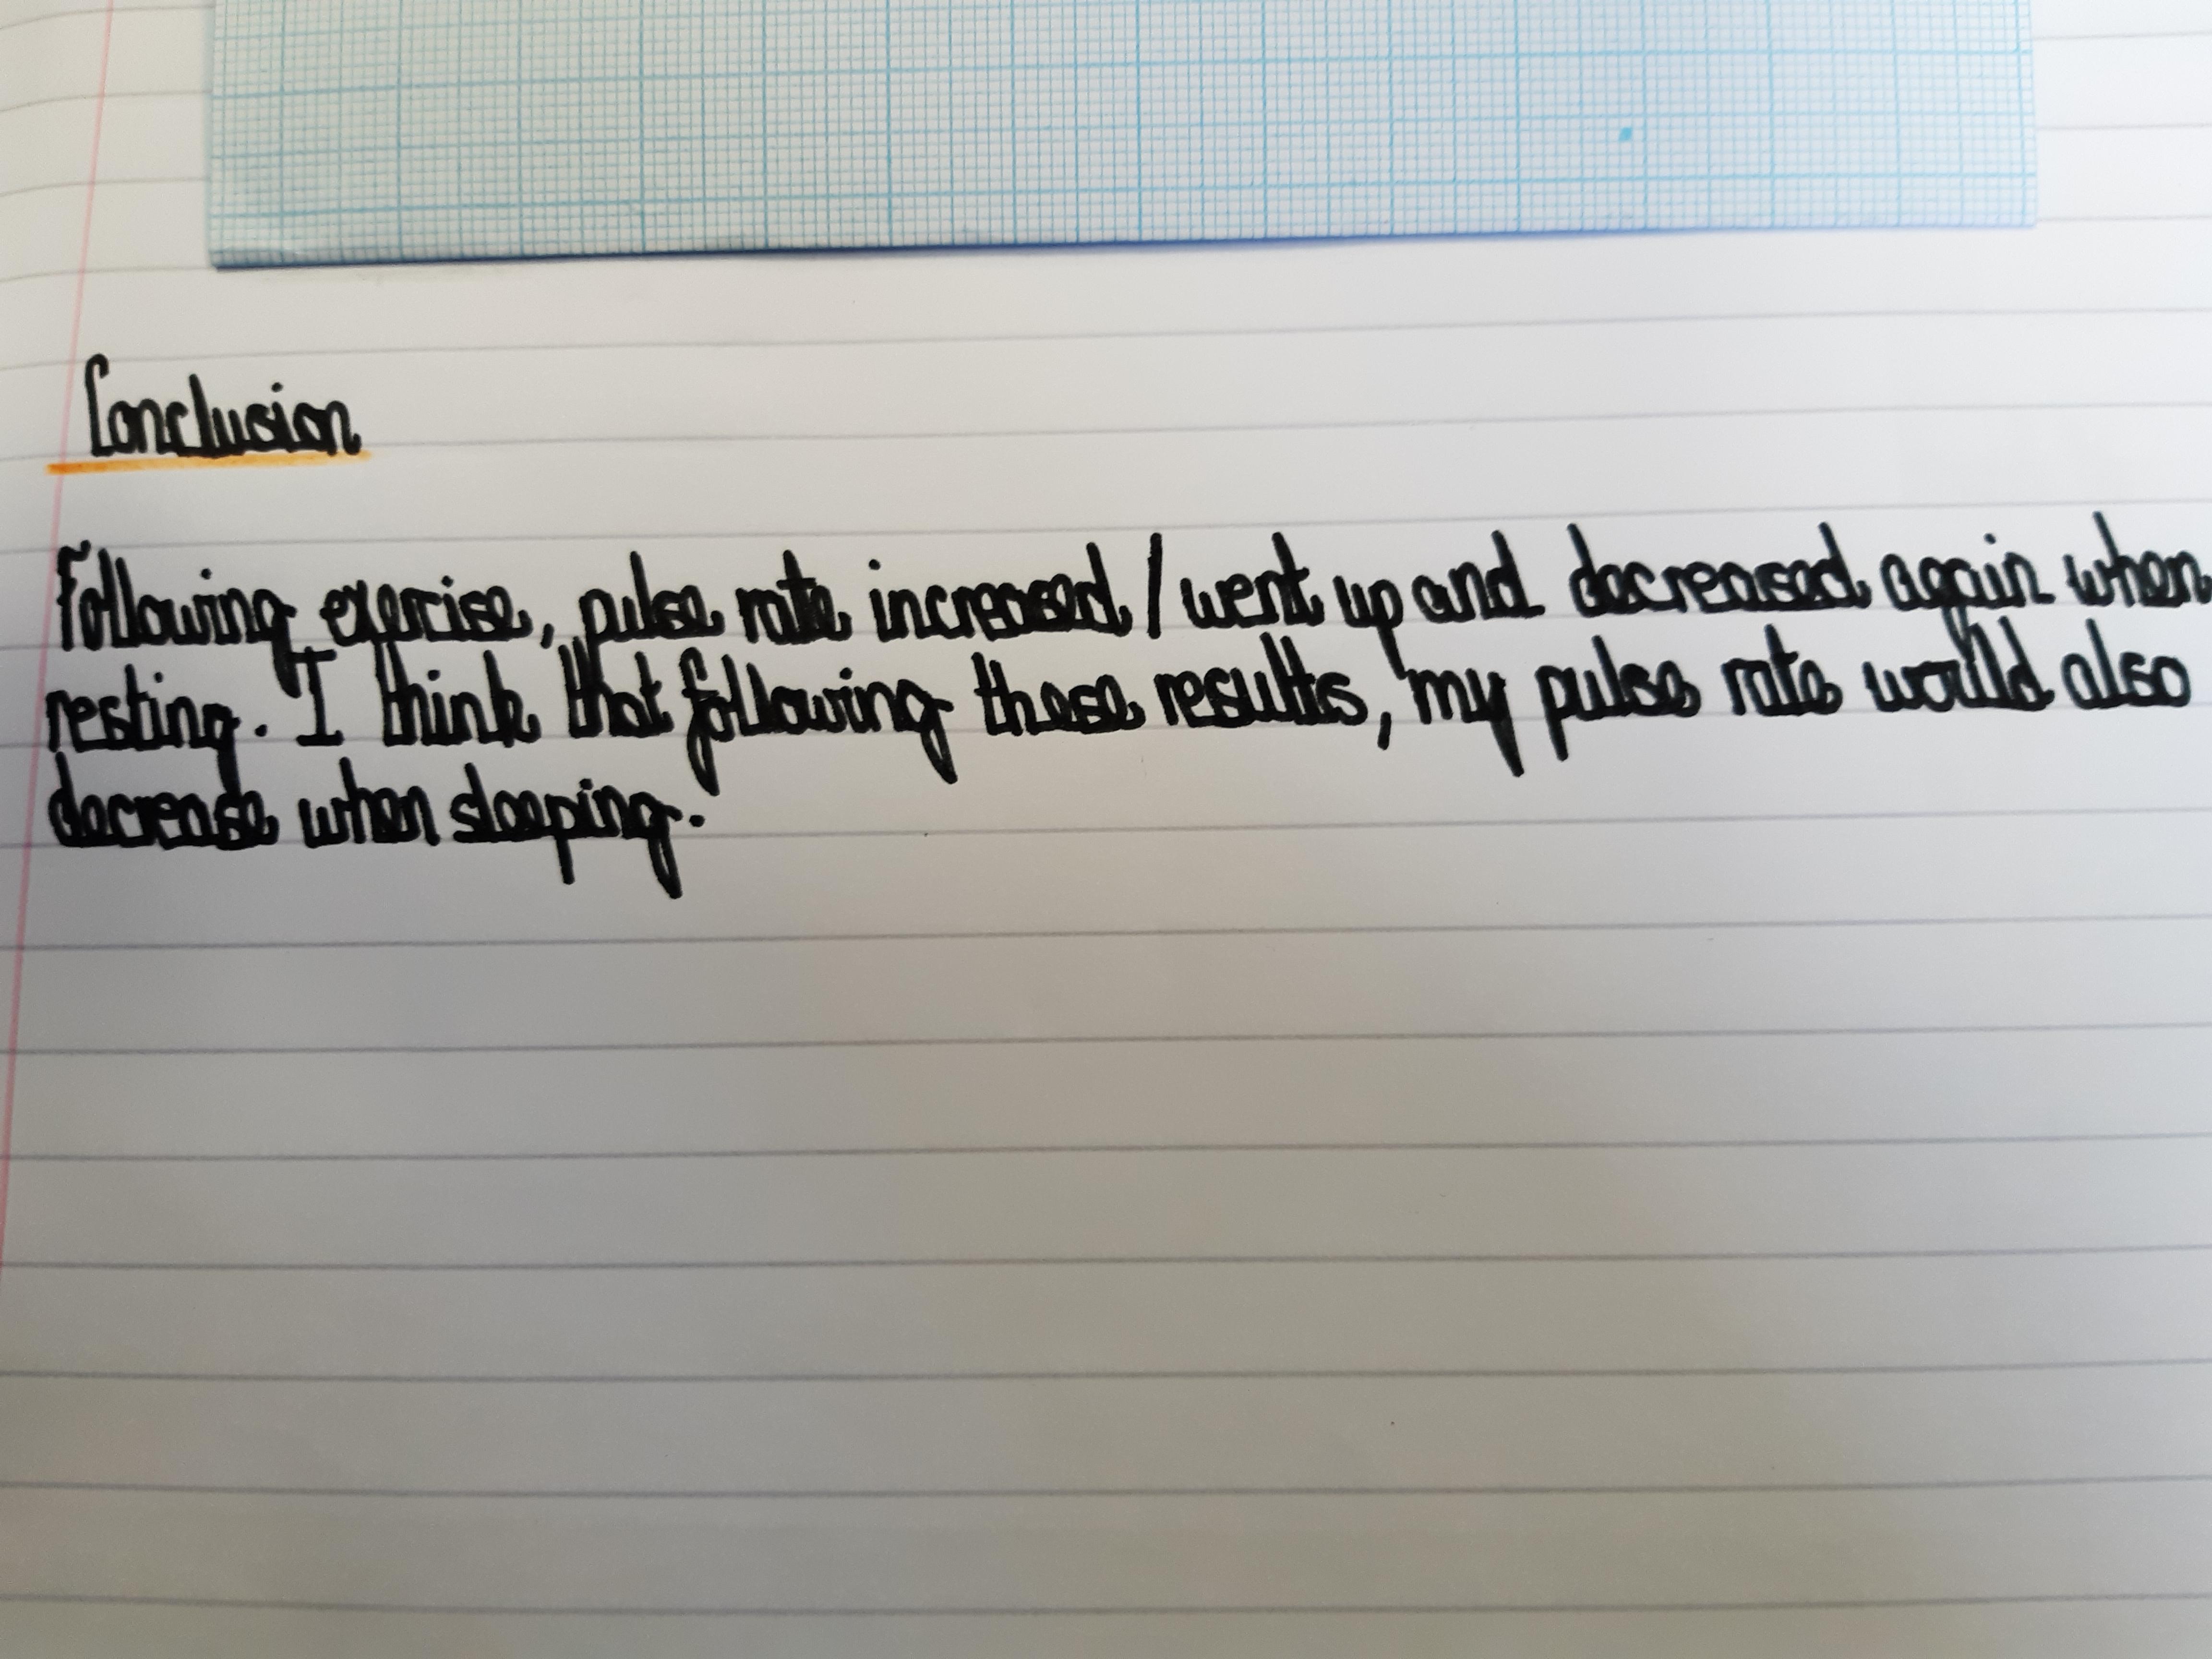 Conclusion
Following exercise, pulse rate increased / went up and decreased again when
resting. I think that following these results, my pulse rate would also
decrease when sleeping.